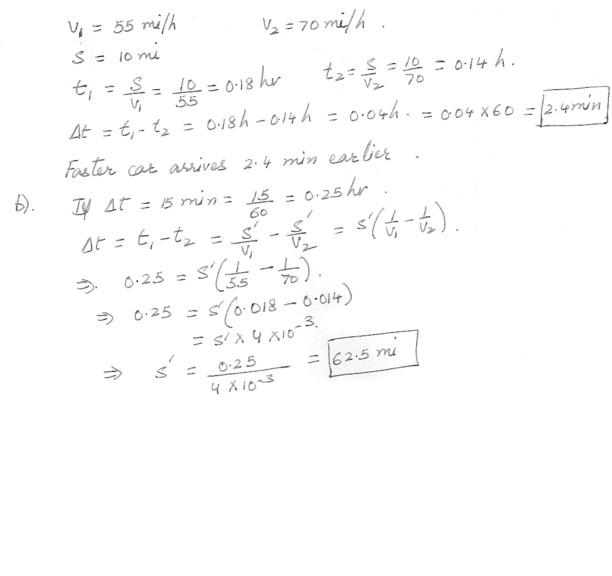 V₁ = 55 mi/h V₂ = 70 mi/h .
S = 10 mi
t₁ = S/V₁ = 10/55 = 0.18 hr t₂ = S/V₂ = 10/70 = 0.14 h.
Δt = t₁ - t₂ = 0.18h - 0.14h = 0.04h. = 0.04 × 60 = 2.4min
Faster car arrives 2.4 min earlier .
b). If Δt = 15 min = 15/60 = 0.25 hr .
Δt = t₁ - t₂ = S'/V₁ - S'/V₂ = S'(1/V₁ - 1/V₂).
⇒. 0.25 = S'(1/55 - 1/70).
⇒ 0.25 = S'(0.018 - 0.014)
= S' × 4 × 10⁻³.
⇒ S' = 0.25/4 × 10⁻³ = 62.5 mi